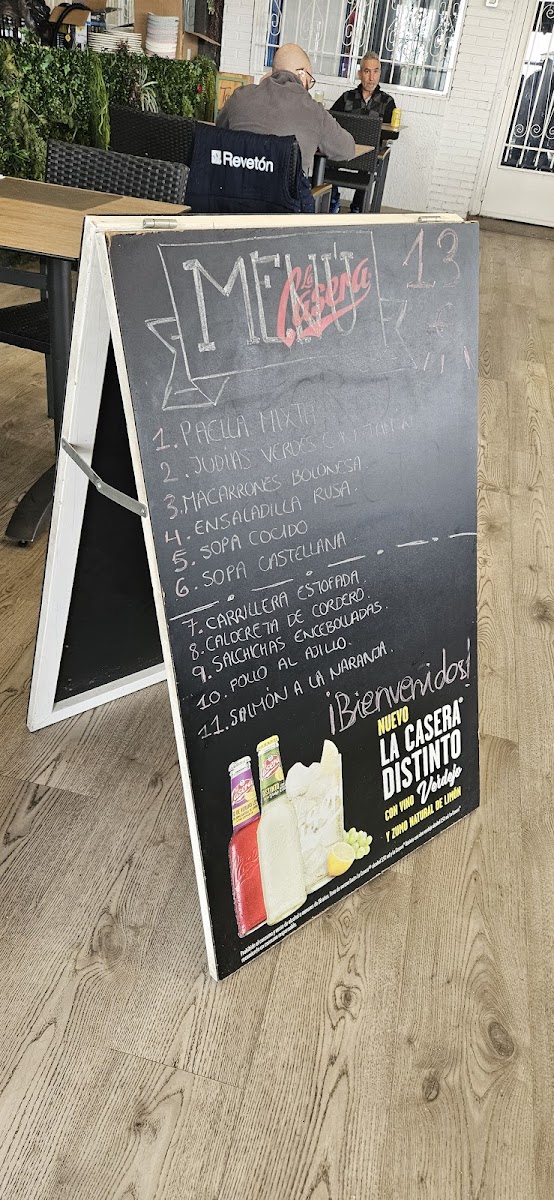 Revetón
MENÚ
La Casera
13
€
1. PAELLA MIXTA
2. JUDÍAS VERDES CON JAMÓN
3. MACARRONES BOLONESA.
4. ENSALADILLA RUSA.
5. SOPA COCIDO
6. SOPA CASTELLANA
7. CARRILLERA ESTOFADA.
8. CALDERETA DE CORDERO.
9. SALCHICHAS ENCEBOLLADAS.
10. POLLO AL AJILLO.
11. SALMÓN A LA NARANJA.
¡Bienvenidos!
NUEVO
LA CASERA®
DISTINTO
CON VINO Verdejo
Y ZUMO NATURAL DE LIMÓN